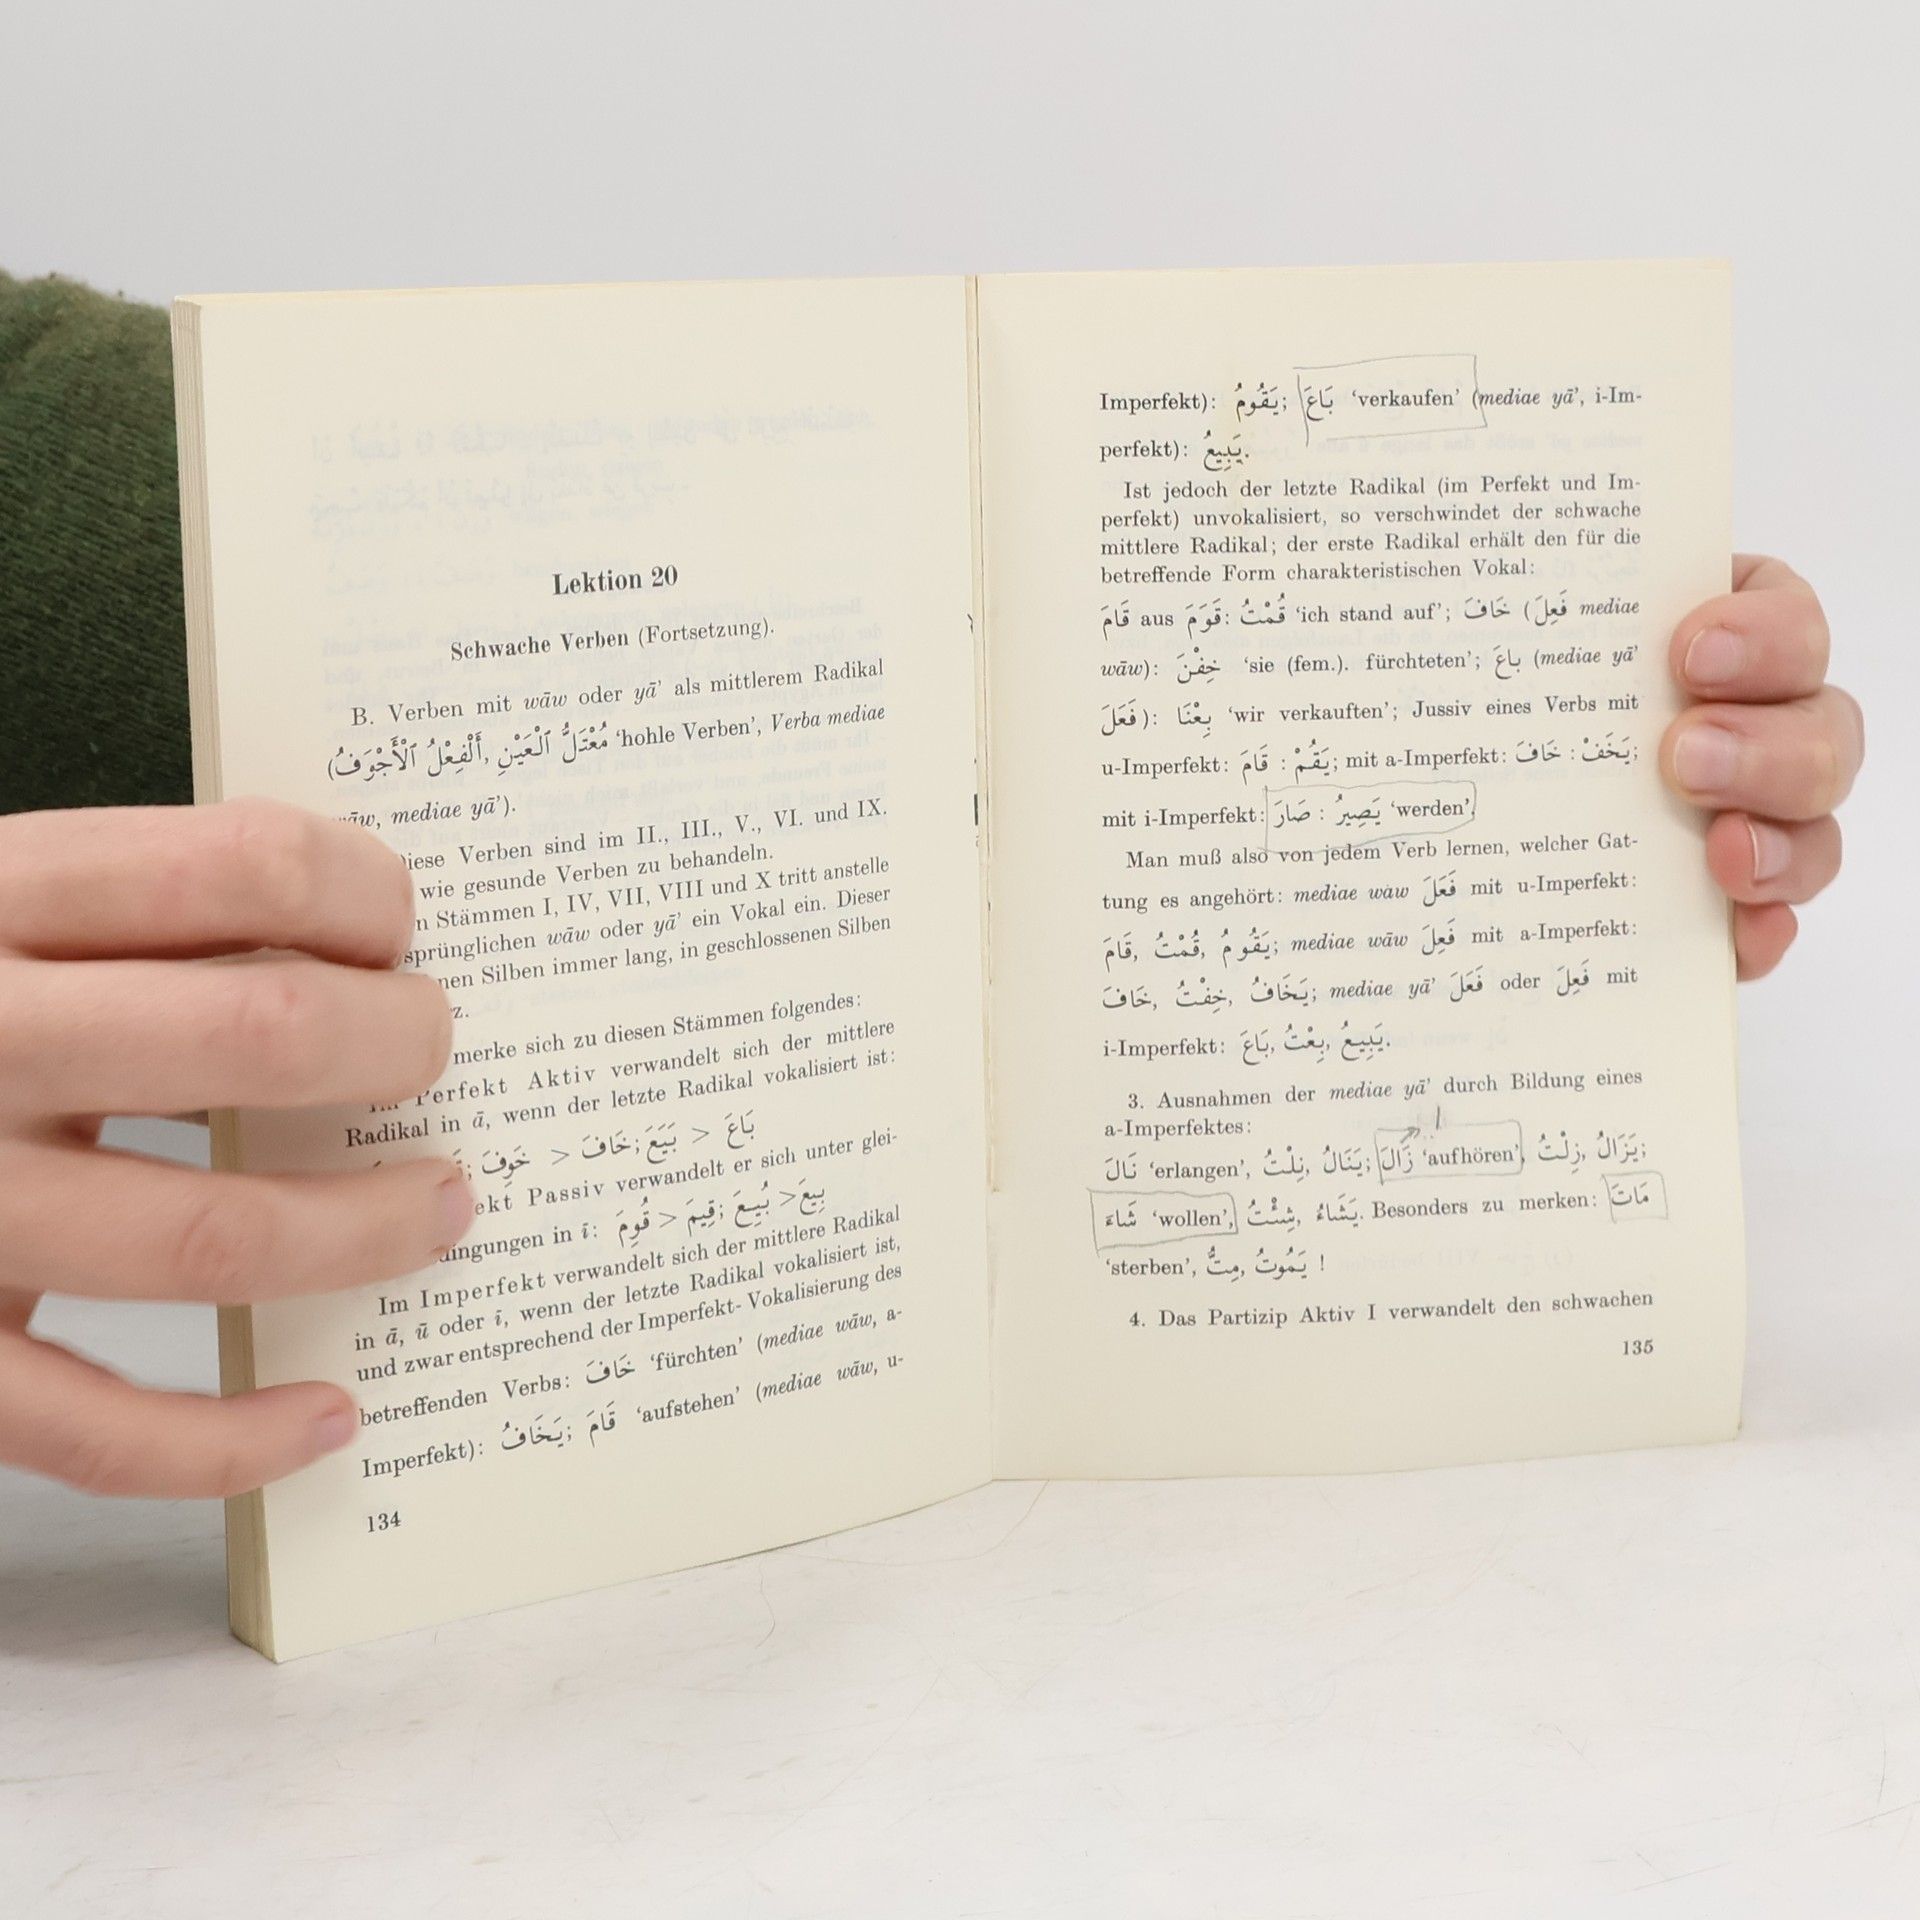 Lektion 20
Schwache Verben (Fortsetzung).
B. Verben mit wāw oder yā’ als mittlerem Radikal
(اَلْفِعْلُ ٱلْأَجْوَفُ, مُعْتَلُّ ٱلْعَيْنِ ‘hohle Verben’, Verba mediae
wāw, mediae yā’).
Diese Verben sind im II., III., V., VI. und IX.
wie gesunde Verben zu behandeln.
Stämmen I, IV, VII, VIII und X tritt anstelle
wāw oder yā’ ein Vokal ein. Dieser
Silben immer lang, in geschlossenen Silben
merke sich zu diesen Stämmen folgendes:
Perfekt Aktiv verwandelt sich der mittlere
Radikal in ā, wenn der letzte Radikal vokalisiert ist:
خَوِفَ > خَافَ; بَيَعَ > بَاعَ
Passiv verwandelt er sich unter glei-
in ī: قُوِمَ > قِيمَ; بُيِعَ > بِيعَ
Im Imperfekt verwandelt sich der mittlere Radikal
in ā, ū oder ī, wenn der letzte Radikal vokalisiert ist,
und zwar entsprechend der Imperfekt-Vokalisierung des
betreffenden Verbs: خَافَ ‘fürchten’ (mediae wāw, a-
Imperfekt): يَخَافُ; قَامَ ‘aufstehen’ (mediae wāw, u-
134
Imperfekt): يَقُومُ; بَاعَ ‘verkaufen’ (mediae yā’, i-Im-
perfekt): يَبِيعُ.
Ist jedoch der letzte Radikal (im Perfekt und Im-
perfekt) unvokalisiert, so verschwindet der schwache
mittlere Radikal; der erste Radikal erhält den für die
betreffende Form charakteristischen Vokal:
قَامَ aus قَوَمَ: قُمْتُ ‘ich stand auf’; خَافَ (فَعِلَ mediae
wāw): خِفْنَ ‘sie (fem.). fürchteten’; باعَ (mediae yā’
فَعَلَ): بِعْنَا ‘wir verkauften’; Jussiv eines Verbs mit
u-Imperfekt: قَامَ : يَقُمْ; mit a-Imperfekt: خَافَ : يَخَفْ;
mit i-Imperfekt: صَارَ : يَصِيرُ ‘werden’.
Man muß also von jedem Verb lernen, welcher Gat-
tung es angehört: mediae wāw فَعَلَ mit u-Imperfekt:
قَامَ, قُمْتُ, يَقُومُ; mediae wāw فَعِلَ mit a-Imperfekt:
خَافَ, خِفْتُ, يَخَافُ; mediae yā’ فَعَلَ oder فَعِلَ mit
i-Imperfekt: بَاعَ, بِعْتُ, يَبِيعُ.
3. Ausnahmen der mediae yā’ durch Bildung eines
a-Imperfektes:
نَالَ ‘erlangen’, نِلْتُ, يَنَالُ; زَالَ ‘aufhören’, زِلْتُ, يَزَالُ;
شَاءَ ‘wollen’, شِئْتُ, يَشَاءُ. Besonders zu merken: مَاتَ
‘sterben’, مِتُّ, يَمُوتُ !
4. Das Partizip Aktiv I verwandelt den schwachen
135